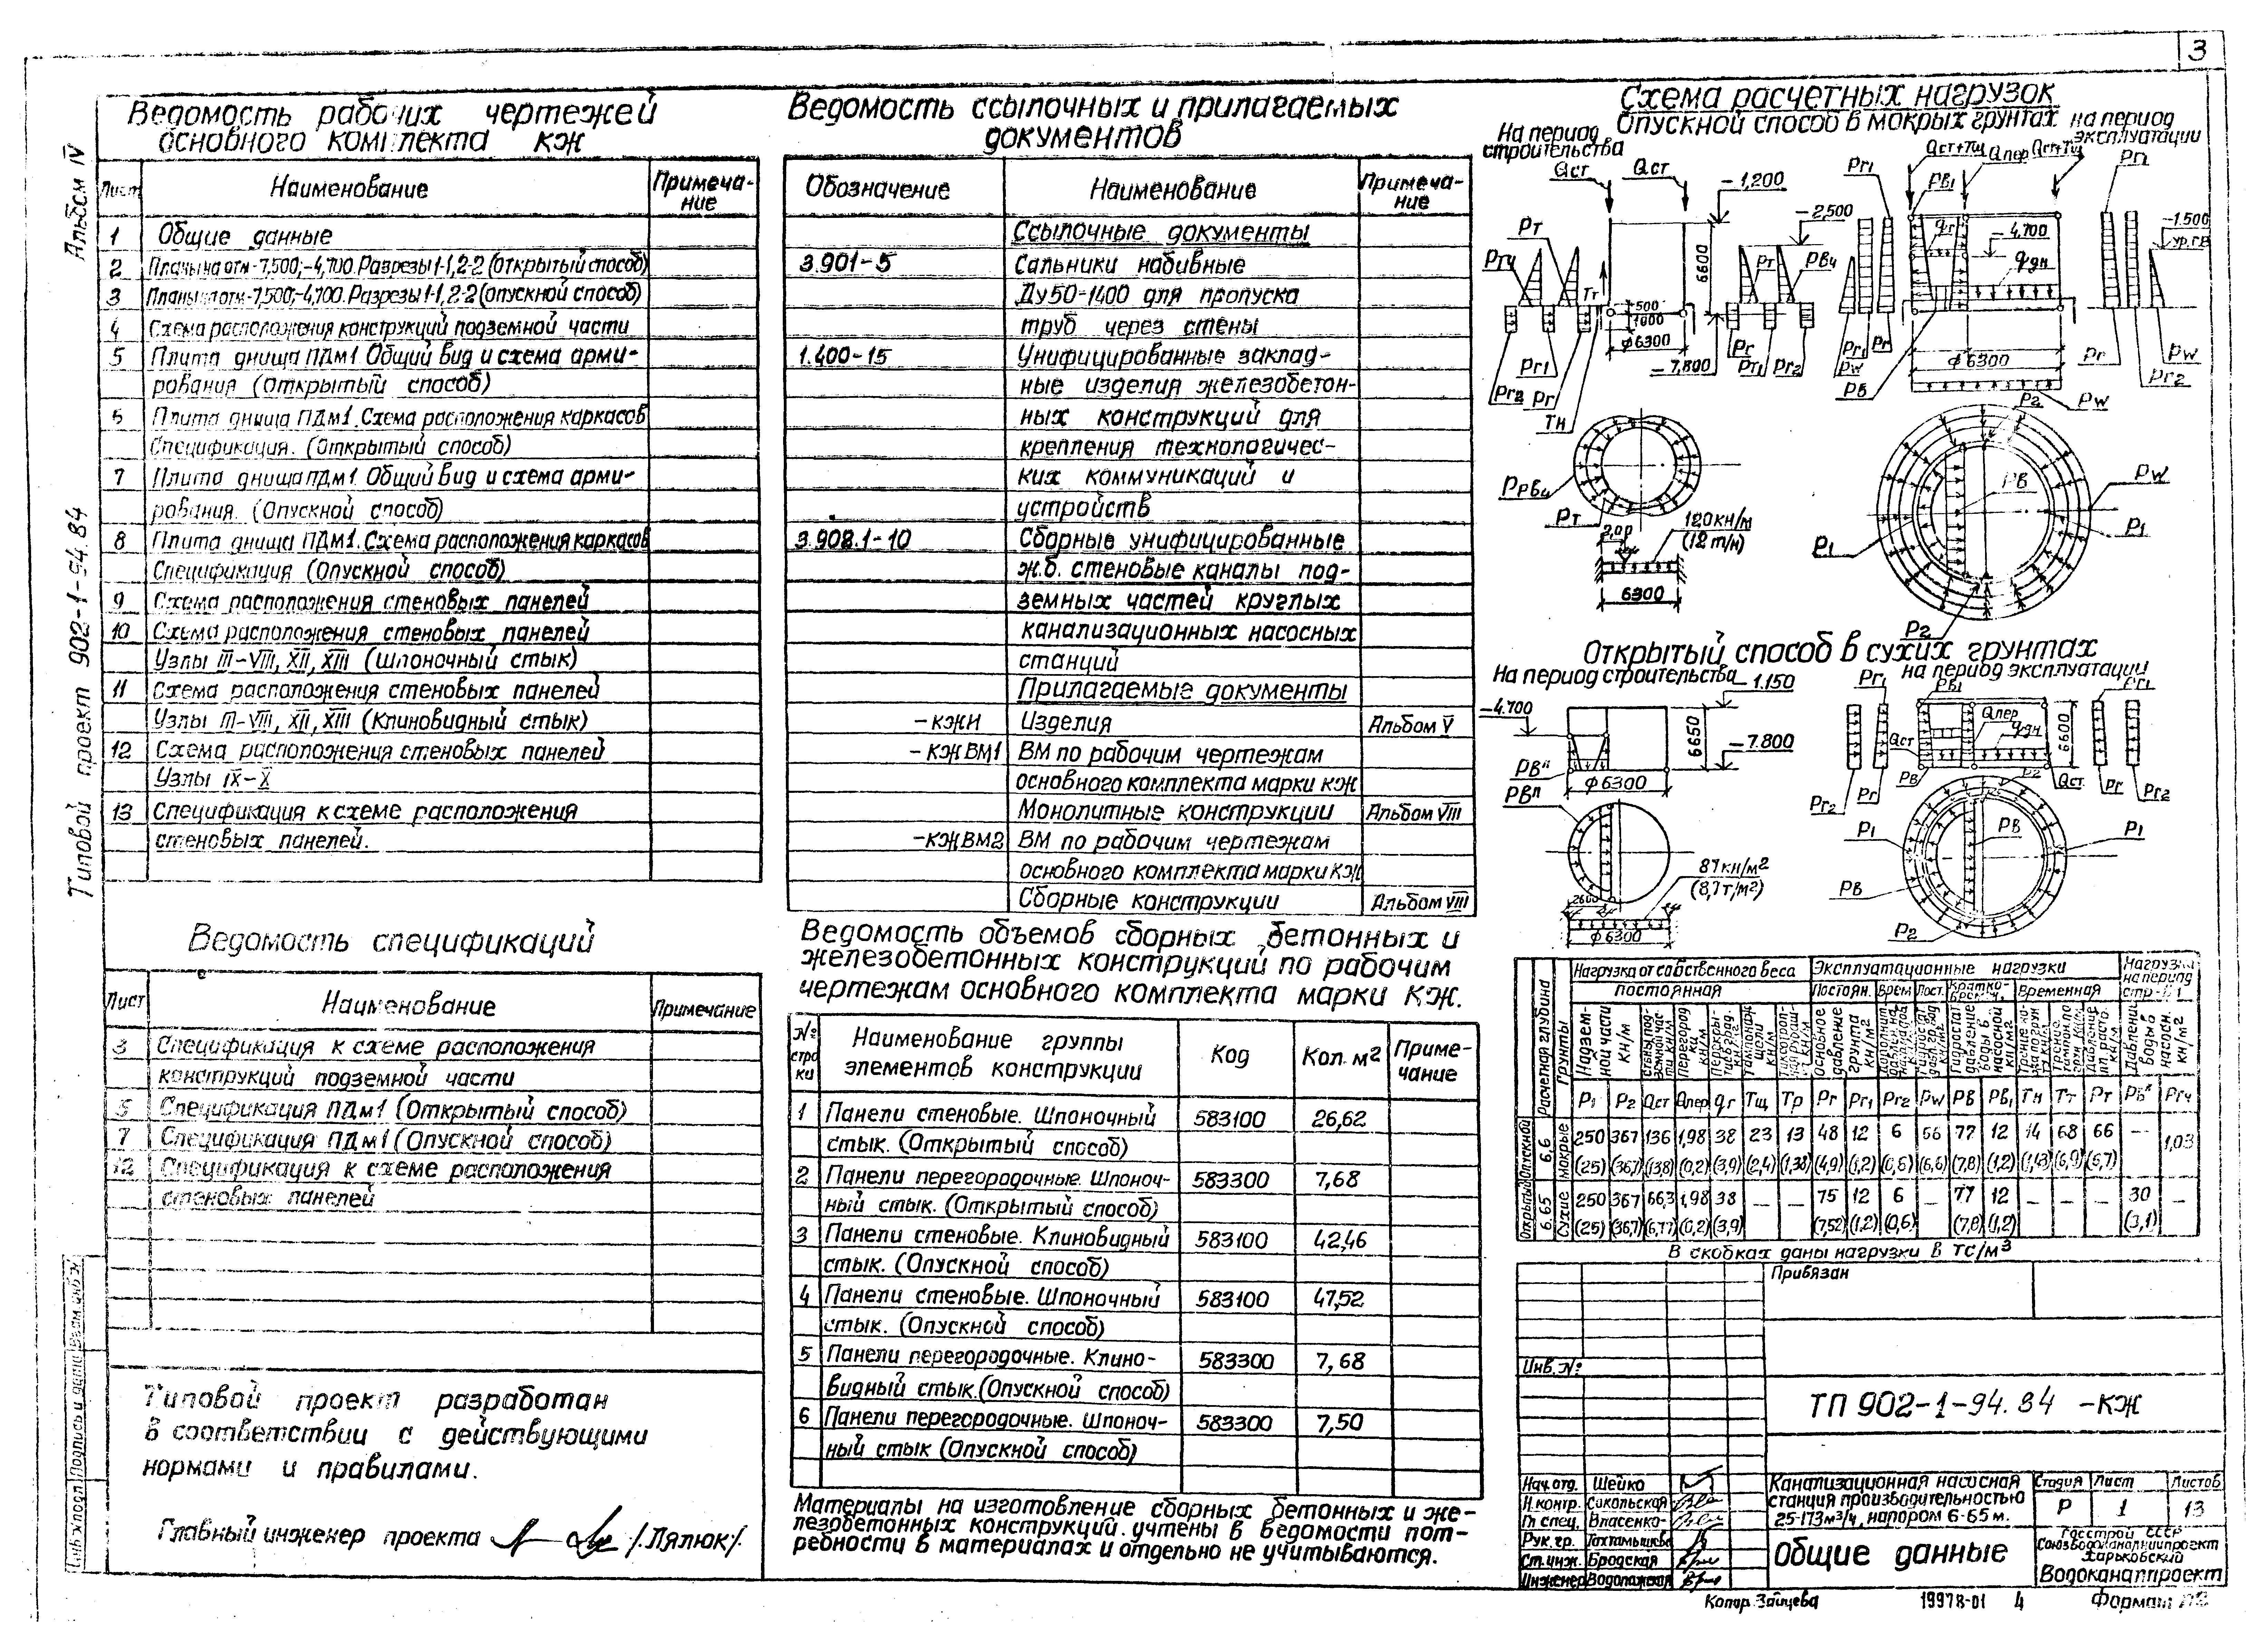 3
Альбом IV
Типовой проект 902-1-94.84
Ведомость рабочих чертежей
основного комплекта КЖ
Лист
Наименование
Примеча-
ние
1 Общие данные
2 Планы на отм -7,500; -4,700. Разрезы 1-1, 2-2 (открытый способ)
3 Планы на отм -7,500; -4,700. Разрезы 1-1, 2-2 (опускной способ)
4 Схема расположения конструкций подземной части
5 Плита днища ПДм1. Общий вид и схема арми-
рования (Открытый способ)
6 Плита днища ПДм1. Схема расположения каркасов
Спецификация. (Открытый способ)
7 Плита днища ПДм1. Общий вид и схема арми-
рования. (Опускной способ)
8 Плита днища ПДм1. Схема расположения каркасов
Спецификация (Опускной способ)
9 Схема расположения стеновых панелей
10 Схема расположения стеновых панелей
Узлы III-VIII, XII, XIII (Шпоночный стык)
11 Схема расположения стеновых панелей
Узлы III-VIII, XII, XIII (Клиновидный стык)
12 Схема расположения стеновых панелей
Узлы IX-X
13 Спецификация к схеме расположения
стеновых панелей.
Ведомость спецификаций
Лист
Наименование
Примечание
3 Спецификация к схеме расположения
конструкций подземной части
5 Спецификация ПДм1 (Открытый способ)
7 Спецификация ПДм1 (Опускной способ)
12 Спецификация к схеме расположения
стеновых панелей
Типовой проект разработан
в соответствии с действующими
нормами и правилами.
Главный инженер проекта /Лялюк/.
Ведомость ссылочных и прилагаемых
документов
Обозначение
Наименование
Примеча-
ние
Ссылочные документы
3.901-5 Сальники набивные
Ду50-1400 для пропуска
труб через стены
1.400-15 Унифицированные заклад-
ные изделия железобетон-
ных конструкций для
крепления технологичес-
ких коммуникаций и
устройств
3.902.1-10 Сборные унифицированные
ж.б. стеновые каналы под-
земных частей круглых
канализационных насосных
станций
Прилагаемые документы
-КЖИ Изделия Альбом V
-КЖ ВМ1 ВМ по рабочим чертежам
основного комплекта марки КЖ
Монолитные конструкции Альбом VIII
-КЖ ВМ2 ВМ по рабочим чертежам
основного комплекта марки КЖ
Сборные конструкции Альбом VIII
Ведомость объемов сборных бетонных и
железобетонных конструкций по рабочим
чертежам основного комплекта марки КЖ.
№ стро ки
Наименование группы
элементов конструкции
Код
Кол. м²
Приме-
чание
1 Панели стеновые. Шпоночный 583100 26,62
стык. (Открытый способ)
2 Панели перегородочные. Шпоноч- 583300 7,68
ный стык. (Открытый способ)
3 Панели стеновые. Клиновидный 583100 42,46
стык. (Опускной способ)
4 Панели стеновые. Шпоночный 583100 47,52
стык. (Опускной способ)
5 Панели перегородочные. Клино- 583300 7,68
видный стык. (Опускной способ)
6 Панели перегородочные. Шпоноч- 583300 7,50
ный стык (Опускной способ)
Материалы на изготовление сборных бетонных и же-
лезобетонных конструкций учтены в ведомости пот-
ребности в материалах и отдельно не учитываются.
Схема расчетных нагрузок
Опускной способ в мокрых грунтах
На период
строительства
на период
эксплуатации
Qст Qст
-1,200
-2,500
Рт
Рги
6600
500
1000
ф6300
-7,800
Рг1
Рг2 Рг
Тн
Рт Рви
Рг Рт1 Рг2
Qст+Тщ Qпер Qст+Тщ
Рг1 Рв1 qг
-4,700
qдн
-1.500
ур.г.в
Рг1 Рг Рw
Рв
ф6300
Рw
Рг Рw
Рг2
Ррви
Рт
120кн/м
(12т/м)
6300
Р2
Рв
Рw
Р1
Р1
Р2
Открытый способ в сухих грунтах
На период строительства
на период эксплуатации
-1.150
-4.700
6650
-7.800
Рвᴨ
ф6300
Рвᴨ
87кн/м²
(8,7т/м²)
2600
ф6300
Рг1 Рв1
Qпер
Qст qдн
6600
Рг1
Рв Р2 Qст Рг Рг2
Рг2 Рг
Р1 Рв Р1
Рв
Р2
Расчетная глубина
Грунты
Нагрузка от собственного веса
Эксплуатационные нагрузки
Нагрузка
на период
постоянная
Постоян. Врем. Пост. Временная
Надзем-
ной части
кн/м
Основное
давление
грунта
кн/м²
Р1 Р2 Qст Qпер qг Тщ Тр Рг Рг1 Рг2 Рw Рв Рв1 Тн Тт Рт Рвᴨ Рги
Опускной 6,6 мокрые 250 367 136 1,98 38 23 13 48 12 6 66 77 12 14 68 66 — 1,03
(25) (36,7) (13,8) (0,2) (3,9) (2,4) (1,38) (4,9) (1,2) (0,6) (6,6) (7,8) (1,2) (1,43) (6,9) (6,7)
Открытый 6,65 Сухие 250 367 66,3 1,98 38 — — 75 12 6 — 77 12 — — — 30 —
(25) (36,7) (6,77) (0,2) (3,9) (7,52) (1,2) (0,6) (7,8) (1,2) (3,1)
В скобках даны нагрузки в тс/м³
Привязан
Инв. №:
ТП 902-1-94.84 -КЖ
Нач. отд. Шейко
Н. контр. Сокольская
Гл. спец. Власенко
Рук. гр.
Ст. инж. Бродская
Инженер Водолажская
Канализационная насосная
станция производительностью
25-173м³/ч, напором 6-65 м.
Стадия Лист Листов
Р 1 13
Общие данные
Госстрой СССР
Союзводоканалниипроект
Харьковский
Водоканалпроект
Копир. Зайцева
19978-01 4
Формат А2
Инв.№подл. Подпись и дата Взам.инв.№